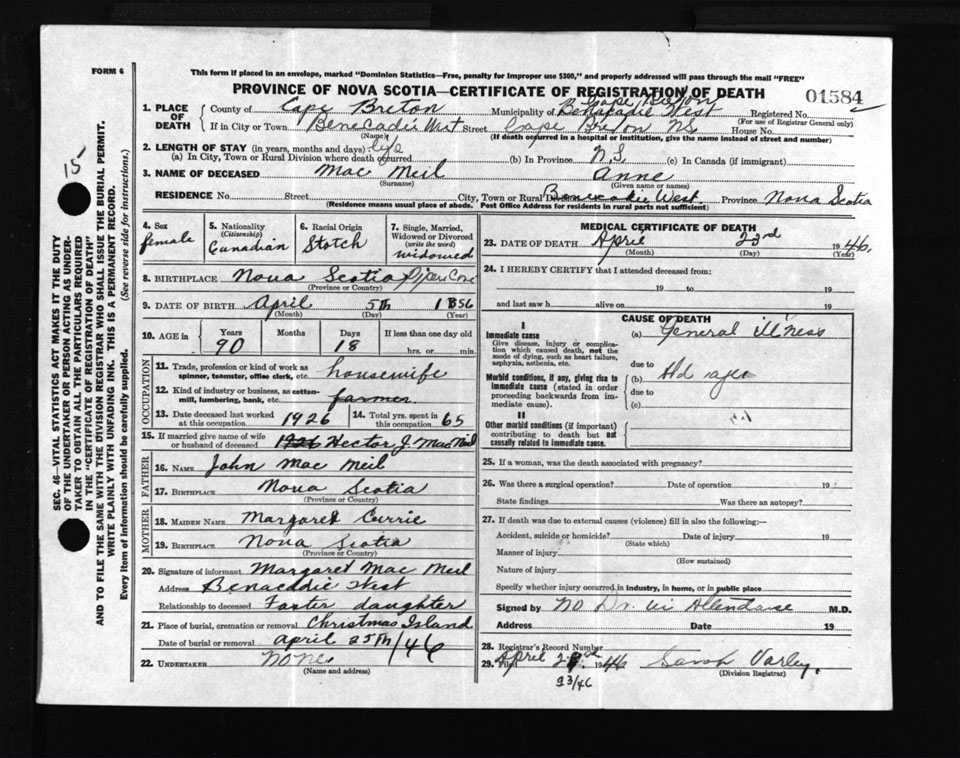 FORM 6
This form if placed in an envelope, marked "Dominion Statistics—Free, penalty for improper use $300," and properly addressed will pass through the mail "FREE"
PROVINCE OF NOVA SCOTIA—CERTIFICATE OF REGISTRATION OF DEATH
01584
1. PLACE OF DEATH County of Cape Breton Municipality of Cape Breton Benacadie West Registered No.
(For use of Registrar General only)
If in City or Town Benecadie West Street Cape Breton N.S. House No.
(Name) (If death occurred in a hospital or institution, give the name instead of street and number)
2. LENGTH OF STAY (in years, months and days) life
(a) In City, Town or Rural Division where death occurred (b) In Province N.S. (c) In Canada (if immigrant)
3. NAME OF DECEASED Mac Neil Anne
(Surname) (Given name or names)
RESIDENCE No. Street City, Town or Rural Division Benecadie West. Province Nova Scotia
(Residence means usual place of abode. Post Office Address for residents in rural parts not sufficient)
4. Sex female
5. Nationality (Citizenship) Canadian
6. Racial Origin Scotch
7. Single, Married, Widowed or Divorced (write the word) widowed
8. BIRTHPLACE Nova Scotia Pipers Cove
(Province or Country)
9. DATE OF BIRTH April 5th 1856
(Month) (Day) (Year)
10. AGE in Years 90 Months Days 18 If less than one day old hrs. or min.
OCCUPATION
11. Trade, profession or kind of work as spinner, teamster, office clerk, etc. housewife
12. Kind of industry or business, as cotton-mill, lumbering, bank, etc. farmer
13. Date deceased last worked at this occupation 1926 14. Total yrs. spent in this occupation 65
15. If married give name of wife or husband of deceased 1926 Hector J. Mac Neil
FATHER
16. NAME John Mac Neil
17. BIRTHPLACE Nova Scotia
(Province or Country)
MOTHER
18. MAIDEN NAME Margaret Currie
19. BIRTHPLACE Nova Scotia
(Province or Country)
20. Signature of informant Margaret Mac Neil
Address Benacadie West
Relationship to deceased Foster daughter
21. Place of burial, cremation or removal Christmas Island
Date of burial or removal April 25th/46
22. UNDERTAKER None
(Name and address)
MEDICAL CERTIFICATE OF DEATH
23. DATE OF DEATH April 23rd 1946
(Month) (Day) (Year)
24. I HEREBY CERTIFY that I attended deceased from:
19 to 19
and last saw h alive on 19
CAUSE OF DEATH
I
Immediate cause
Give disease, injury or complication which caused death, not the mode of dying, such as heart failure, asphyxia, asthenia, etc.
(a) General illness
due to
Morbid conditions, if any, giving rise to immediate cause (stated in order proceeding backwards from immediate cause).
(b) Old age
due to
(c)
II
Other morbid conditions (if important) contributing to death but not causally related to immediate cause.
25. If a woman, was the death associated with pregnancy?
26. Was there a surgical operation? Date of operation 19
State findings Was there an autopsy?
27. If death was due to external causes (violence) fill in also the following:—
Accident, suicide or homicide? Date of injury 19
(State which)
Manner of injury
(How sustained)
Nature of injury
Specify whether injury occurred in industry, in home, or in public place
Signed by No Dr. in Attendance M.D.
Address Date 19
28. Registrar's Record Number
29. Filed April 23rd 1946 Sarah Varley.
(Division Registrar)
23/46
15
SEC. 46—VITAL STATISTICS ACT MAKES IT THE DUTY
OF THE UNDERTAKER OR PERSON ACTING AS UNDER-
TAKER TO OBTAIN ALL THE PARTICULARS REQUIRED
IN THE "CERTIFICATE OF REGISTRATION OF DEATH"
AND TO FILE THE SAME WITH THE DIVISION REGISTRAR WHO SHALL ISSUE THE BURIAL PERMIT.
WRITE PLAINLY WITH UNFADING INK. THIS IS A PERMANENT RECORD.
Every item of information should be carefully supplied. (See reverse side for instructions.)